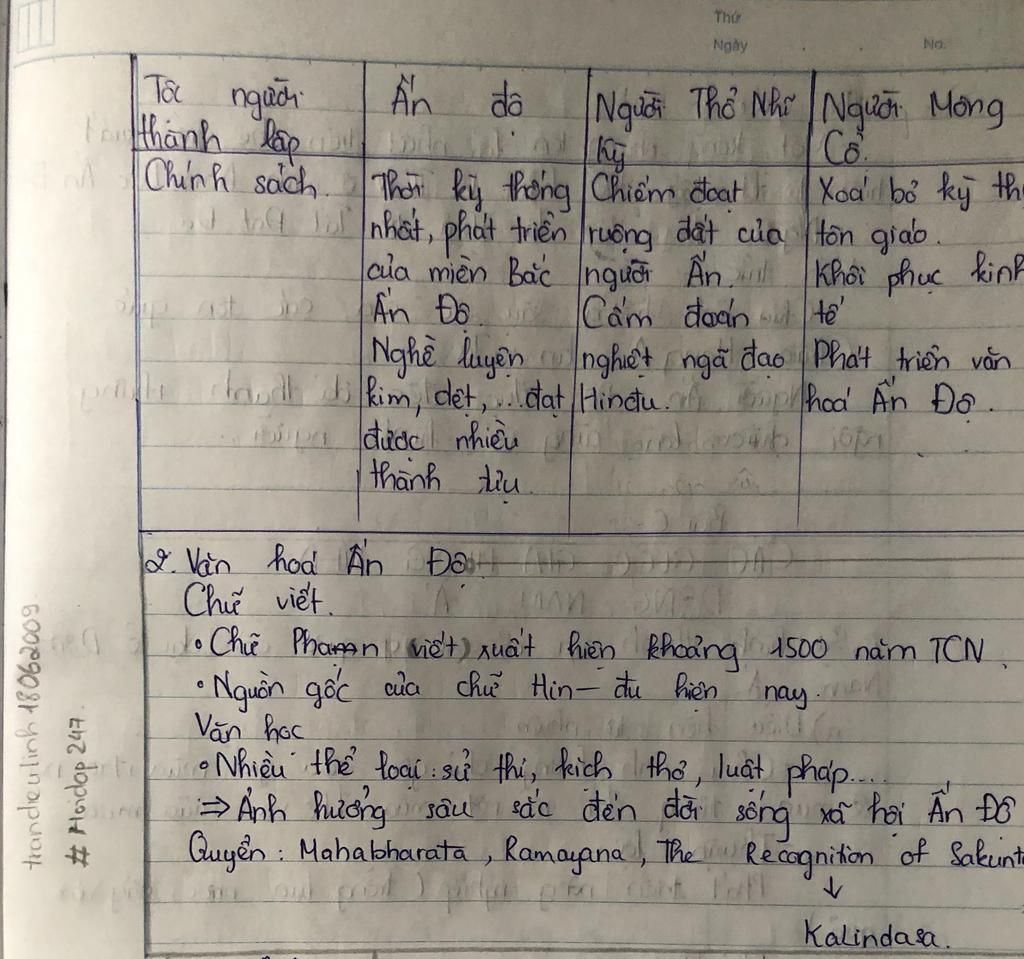 Thứ
Ngày . . No.
Tôc người thành lập
Ấn độ
Người Thổ Nhĩ Kỳ
Người Mông Cổ.
Chính sách.
Thời kỳ thống
nhất, phát triển
của miền Bắc
Ấn Độ.
Nghề luyện
kim, dệt, ... đạt
được nhiều
thành tựu.
Chiếm đoạt
ruộng đất của
người Ấn.
Cấm đoán
nghiệt ngã đạo
Hinđu.
Xoá bỏ kỳ th
tôn giáo.
Khôi phục kinh
tế
Phát triển văn
hoá Ấn Độ.
2. Văn hoá Ấn Độ.
Chữ viết.
• Chữ Phạn (viết) xuất hiện khoảng 1500 năm TCN.
• Nguồn gốc của chữ Hin-đu hiện nay.
Văn học
• Nhiều thể loại: sử thi, kịch thơ, luật pháp....
⇒ Ảnh hưởng sâu sắc đến đời sống xã hội Ấn Độ
Quyển: Mahabharata, Ramayana, The Recognition of Sakunt
↓
Kalindasa.
trandieulinh18062009
# Hoidap247.